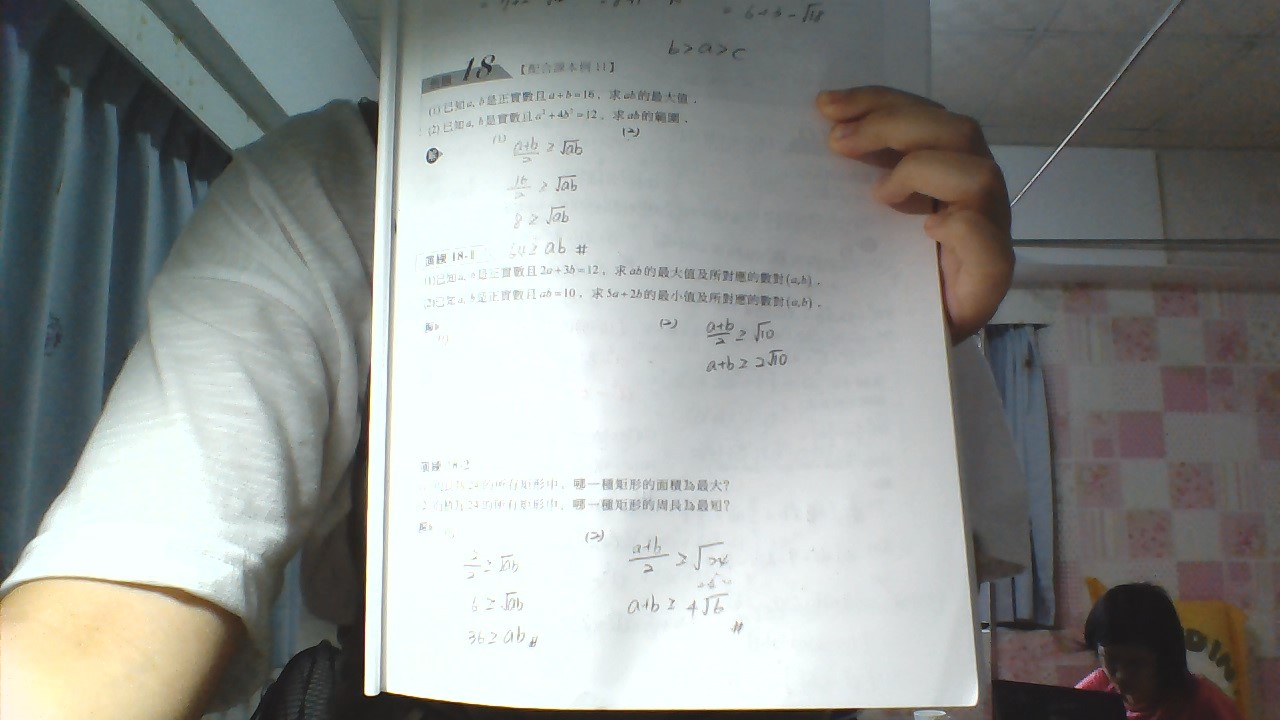 = 6+3-√18
b>a>c
18 【配合課本例11】
(1)已知a, b是正實數且a+b=16，求ab的最大值．
(2)已知a, b是實數且a²+4b²=12，求ab的範圍．
解 (1) (2)
a+b/2 ≥ √ab
16/2 ≥ √ab
8 ≥ √ab
64 ≥ ab #
演練 18-1
(1)已知a, b是正實數且2a+3b=12，求ab的最大值及所對應的數對(a,b)．
(2)已知a, b是正實數且ab=10，求5a+2b的最小值及所對應的數對(a,b)．
解 (1) (2)
a+b/2 ≥ √10
a+b ≥ 2√10
演練 18-2
24的所有矩形中，哪一種矩形的面積為最大?
24的所有矩形中，哪一種矩形的周長為最短?
解 (2)
≥ √ab
6 ≥ √ab
36 ≥ ab #
a+b/2 ≥ √24
a+b ≥ 4√6
#
DIN